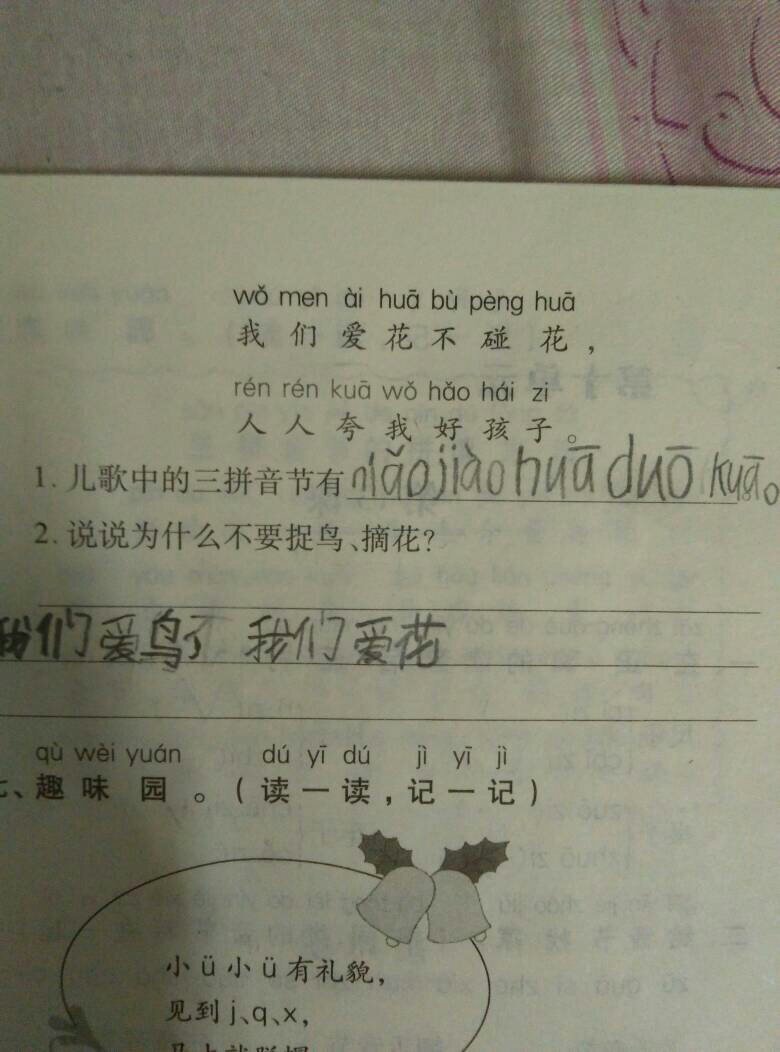 wǒ men ài huā bù pèng huā
我们爱花不碰花，
rén rén kuā wǒ hǎo hái zi
人人夸我好孩子。
1. 儿歌中的三拼音节有niǎo jiào huā duō kuā。
2. 说说为什么不要捉鸟、摘花?
我们爱鸟了 我们爱花
qù wèi yuán dú yī dú jì yī jì
七、趣味园。(读一读,记一记)
小ü小ü有礼貌,
见到j、q、x,
马上就脱帽